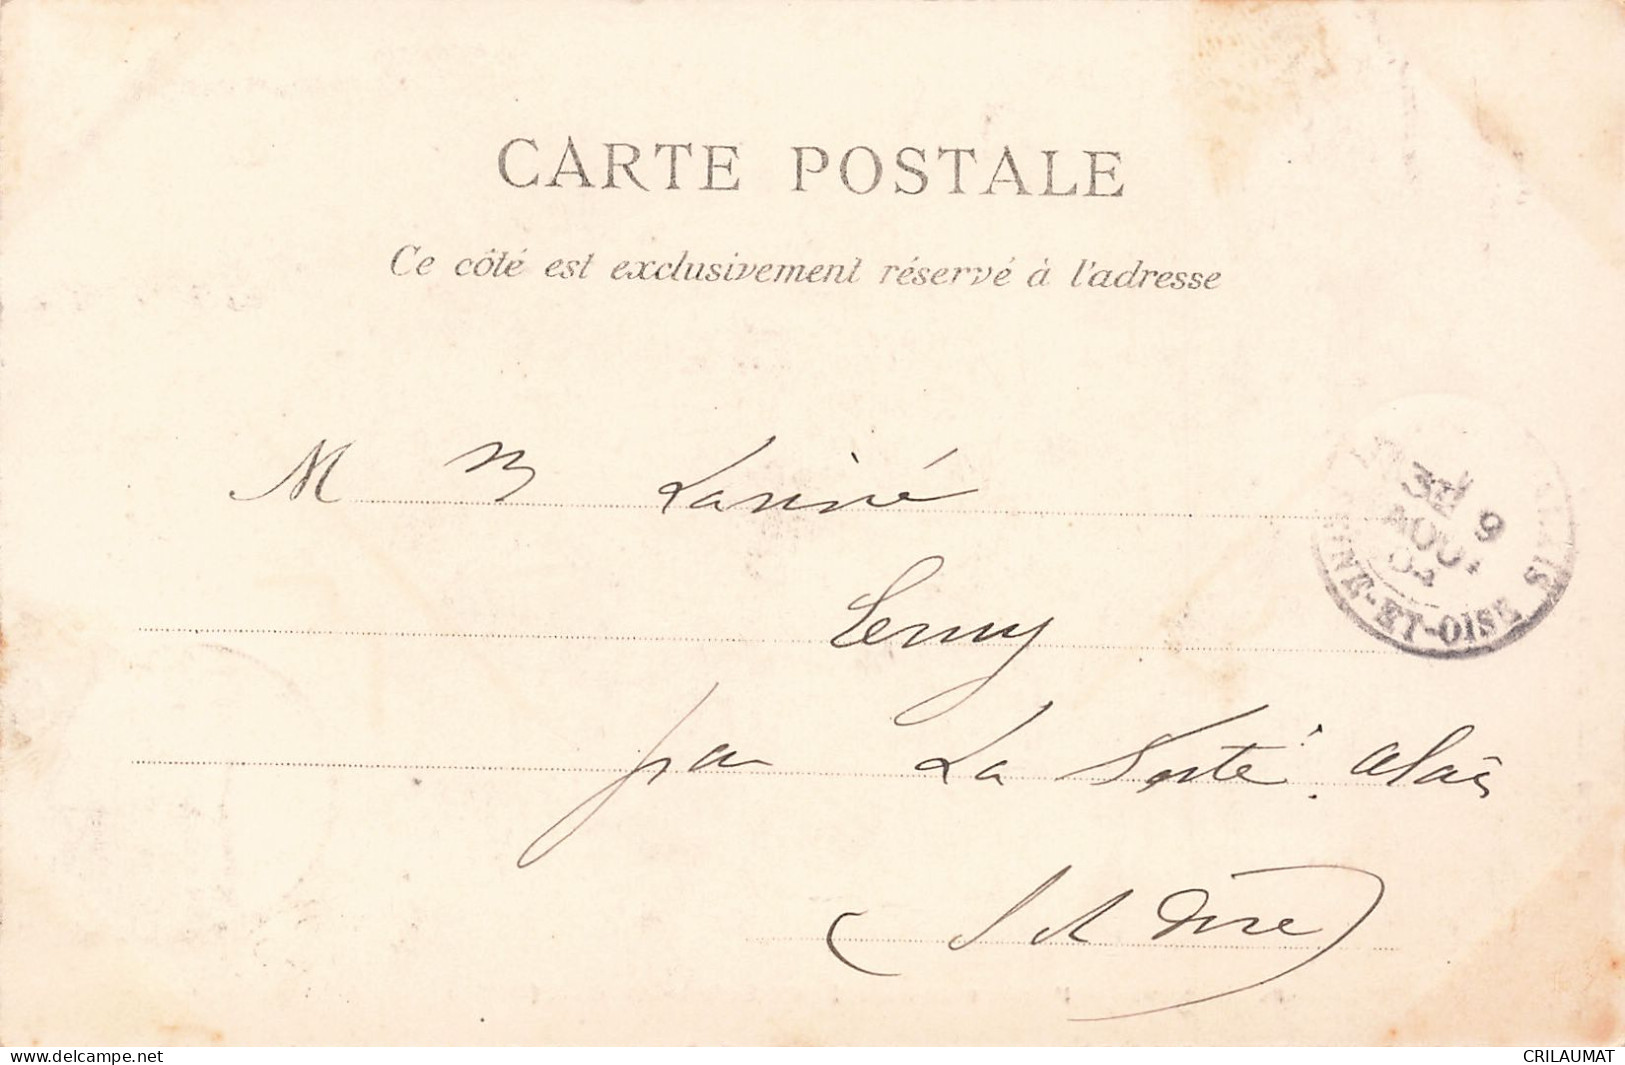 CARTE POSTALE
Ce côté est exclusivement réservé à l'adresse
M B
par La Ferté Alais
(S & Oise)
3E 9
AOUT
ET-OISE
www.delcampe.net
CRILAUMAT